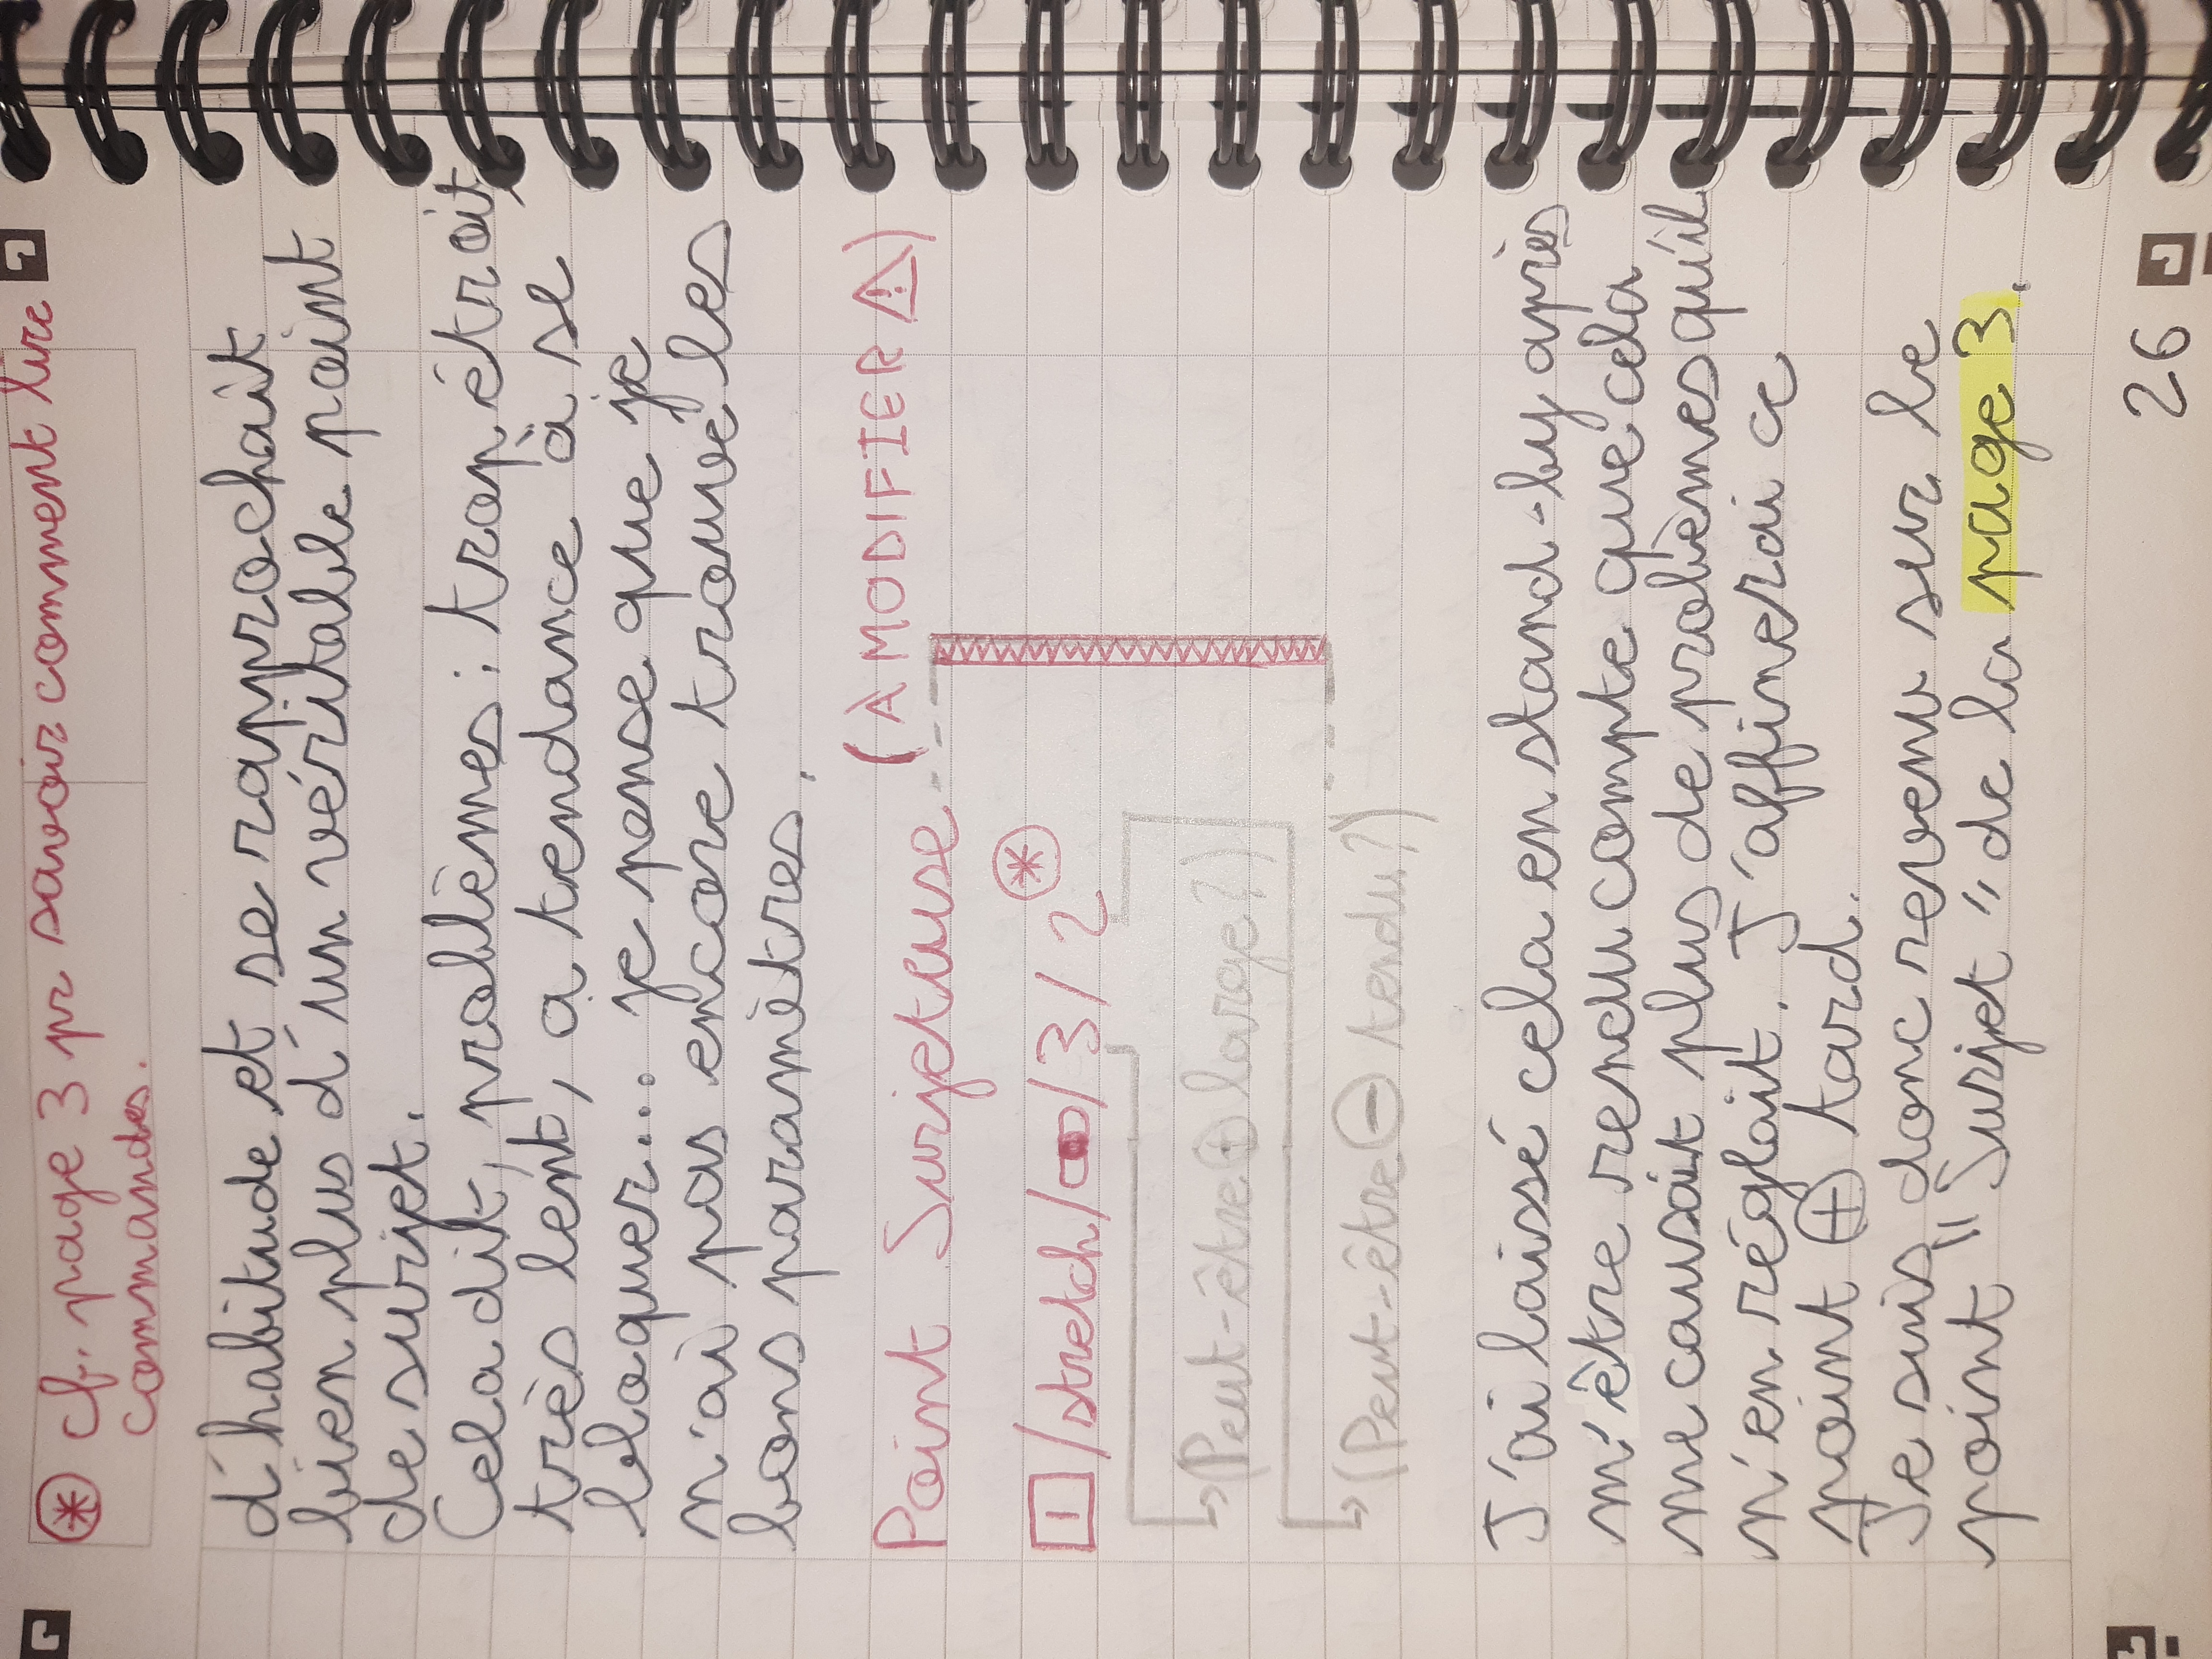 ⊛ cf. page 3 pr savoir comment lire
commandes.
d'habitude et se rapprochait
bien plus d'un véritable point
de surjet.
Cela dit, problèmes : trop étroit,
très lent, a tendance à se
bloquer... je pense que je
n'ai pas encore trouvé les
bons paramètres.
Point Surjeteuse (À MODIFIER ⚠)
1/stretch/∞/3/2 ⊛
(Peut-être ⊕ large ?)
(Peut-être ⊖ tendu ?)
J'ai laissé cela en stand-by après
m'être rendu compte que cela
me causait plus de problèmes qu'il
n'en réglait. J'affinerai ce
point ⊕ tard.
Je suis donc revenu sur le
point "Surjet" de la page 3.
26